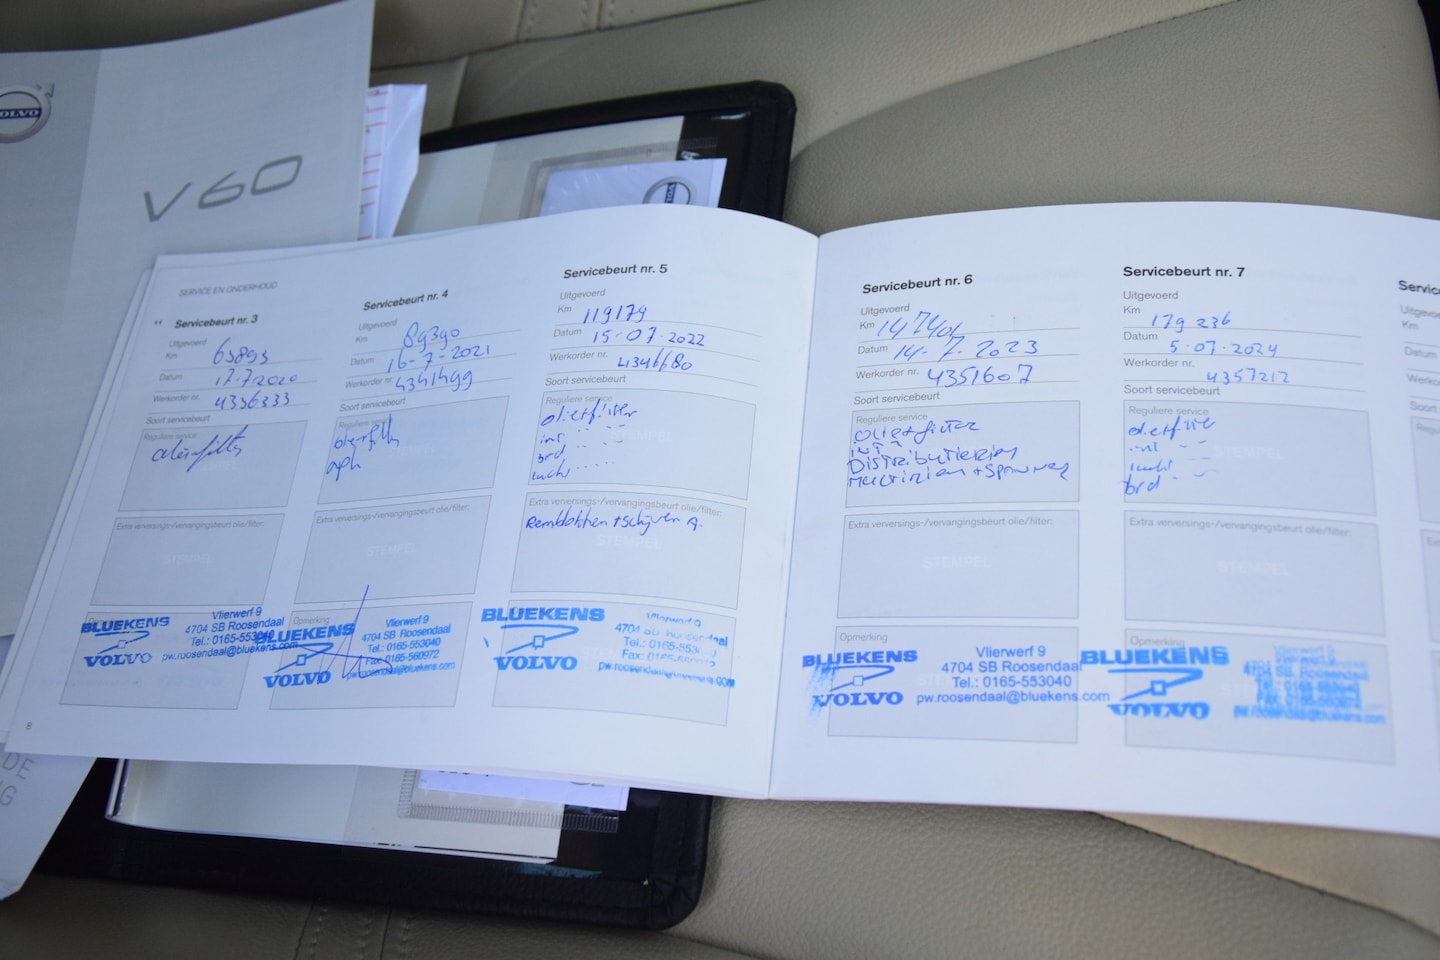 VOLVO
V60
SERVICE EN ONDERHOUD
Servicebeurt nr. 3
Uitgevoerd
Km 63893
Datum 17-7-2020
Werkorder nr. 4336333
Soort servicebeurt
Reguliere service
Extra verversings-/vervangingsbeurt olie/filter:
STEMPEL
BLUEKENS
VOLVO
Vlierwerf 9
4704 SB Roosendaal
Tel.: 0165-553040
pw.roosendaal@bluekens.com
8
Servicebeurt nr. 4
Uitgevoerd
Km 89390
Datum 16-7-2021
Werkorder nr. 4341499
Soort servicebeurt
Reguliere service
Extra verversings-/vervangingsbeurt olie/filter:
STEMPEL
Opmerking
BLUEKENS
VOLVO
Vlierwerf 9
4704 SB Roosendaal
Tel.: 0165-553040
Fax: 0165-560972
pw.roosendaal@bluekens.com
Servicebeurt nr. 5
Uitgevoerd
Km 119179
Datum 15-07-2022
Werkorder nr. 4346680
Soort servicebeurt
Reguliere service
olie+filter
int
brd
lucht
STEMPEL
Extra verversings-/vervangingsbeurt olie/filter:
Remblokken + schijven A.
STEMPEL
BLUEKENS
VOLVO
Vlierwerf 9
4704 SB Roosendaal
Tel.: 0165-553
Servicebeurt nr. 6
Uitgevoerd
Km 147401
Datum 14-7-2023
Werkorder nr. 4351607
Soort servicebeurt
Reguliere service
Olie+filter
INT
Distributieriem
Multiriem + Spanner
Extra verversings-/vervangingsbeurt olie/filter:
STEMPEL
Opmerking
BLUEKENS
VOLVO
Vlierwerf 9
4704 SB Roosendaal
Tel.: 0165-553040
pw.roosendaal@bluekens.com
Servicebeurt nr. 7
Uitgevoerd
Km 179236
Datum 5-07-2024
Werkorder nr. 4357212
Soort servicebeurt
Reguliere service
olie+filter
int
lucht
brd
STEMPEL
Extra verversings-/vervangingsbeurt olie/filter:
STEMPEL
Opmerking
BLUEKENS
VOLVO
Vlierwerf 9
4704 SB Roosendaal
Tel.: 0165-553040
Fax: 0165-560972
pw.roosendaal@bluekens.com
Servic
Uitgevo
Km
Datum
Werkord
Soort